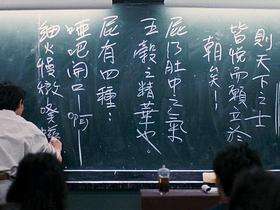 則天下之士
皆悅而願立於
朝矣!
屁乃肚中之氣
五穀之精華也
屁有四種:
啞吧開口一啊
細火慢微噗